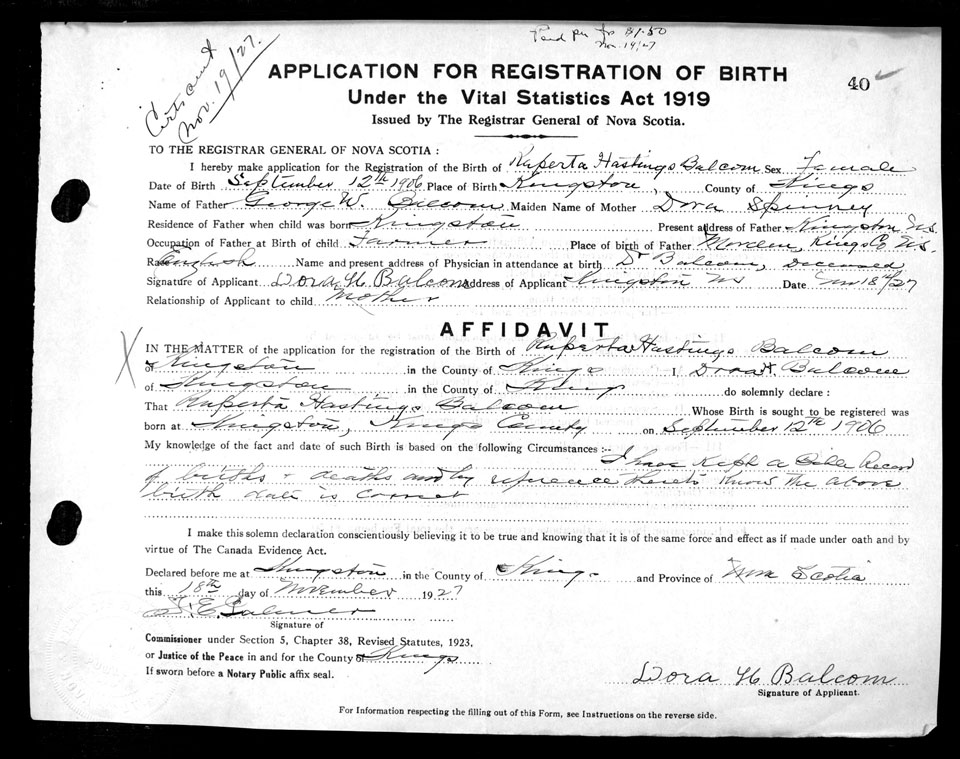 Paid $1.50
Nov. 19/27
Nov. 19/27.
APPLICATION FOR REGISTRATION OF BIRTH
40
Under the Vital Statistics Act 1919
Issued by The Registrar General of Nova Scotia.
TO THE REGISTRAR GENERAL OF NOVA SCOTIA :
I hereby make application for the Registration of the Birth of Ruperta Hastings Balcom Sex Female
Date of Birth September 12th 1906 Place of Birth Kingston, County of Kings
Name of Father George W. Balcom Maiden Name of Mother Dora Spinney
Residence of Father when child was born Kingston Present address of Father Kingston N.S.
Occupation of Father at Birth of child Farmer Place of birth of Father Morden, Kings Co, N.S.
Race English Name and present address of Physician in attendance at birth Dr Balcom, deceased
Signature of Applicant Dora H Balcom Address of Applicant Kingston NS Date Nov 18th/27
Relationship of Applicant to child Mother
AFFIDAVIT
IN THE MATTER of the application for the registration of the Birth of Ruperta Hastings Balcom
of Kingston in the County of Kings I Dora H. Balcom
of Kingston in the County of Kings do solemnly declare :
That Ruperta Hastings Balcom Whose Birth is sought to be registered was
born at Kingston, Kings County on September 12th 1906
My knowledge of the fact and date of such Birth is based on the following Circumstances :- I have kept a Bible Record
of births & deaths and by reference thereto know the above
birth date is correct
I make this solemn declaration conscientiously believing it to be true and knowing that it is of the same force and effect as if made under oath and by
virtue of The Canada Evidence Act.
Declared before me at Kingston in the County of Kings and Province of Nova Scotia
this 18th day of November 1927
Signature of
Commissioner under Section 5, Chapter 38, Revised Statutes, 1923,
or Justice of the Peace in and for the County of Kings
If sworn before a Notary Public affix seal.
Dora H Balcom
Signature of Applicant.
For Information respecting the filling out of this Form, see Instructions on the reverse side.